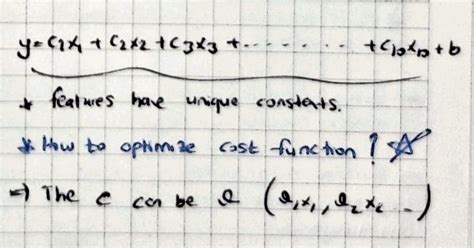 y = c1x1 + c2x2 + c3x3 + ........ + c10x10 + b
* features have unique constants.
* How to optimize cost function ? ☆
⇒ The c can be a (a1x1, a2x2 ..)